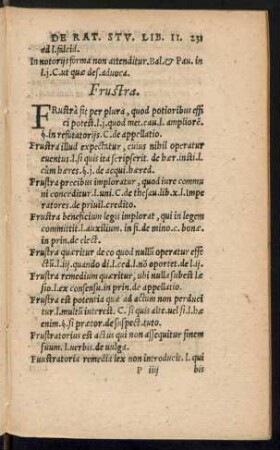 DE RAT. STV. LIB. II. 231
ad l. falcid.
In notorijs forma non attenditur. Bal. & Pau. in
l. j. C. ut quæ des. aduoca.
Frustra.
FRustrà fit per plura, quod potioribus effi
ci potest. l. j. quod met. cau. l. ampliorẽ.
§. in refutatorijs. C. de appellatio.
Frustra illud expectatur, cuius nihil operatur
euentus. l. si quis ita scripserit. de hær. insti. l.
cùm hæres. §. j. de acqui. hæred.
Frustra precibus imploratur, quod iure commu
ni conceditur. l. uni. C. de thesau. lib. x. l. Imp
eratores. de priuil. credito.
Frustra beneficium legis implorat, qui in legem
committit. l. auxilium. in fi. de mino. c. bonæ.
in prin. de elect.
Frustra quæritur de eo quod nullũ operatur effe
ctũ. l. iij. quando di. l. ced. l. nõ aportet. de l. ij.
Frustra remedium quæritur, ubi nulla subest læ
sio. l. ex consensu. in prin. de appellatio.
Frustra est potentia quæ ad actum non perduci
tur. l. multũ interest. C. si quis alte. uel si l. hæc
enim. §. si præter. de suspect. tuto.
Frustratorius est actus qui non assequitur finem
suum. l. uerbis. de uulga.
Fuustratoria remedia lex non introducit. l. qui
P iiij bis